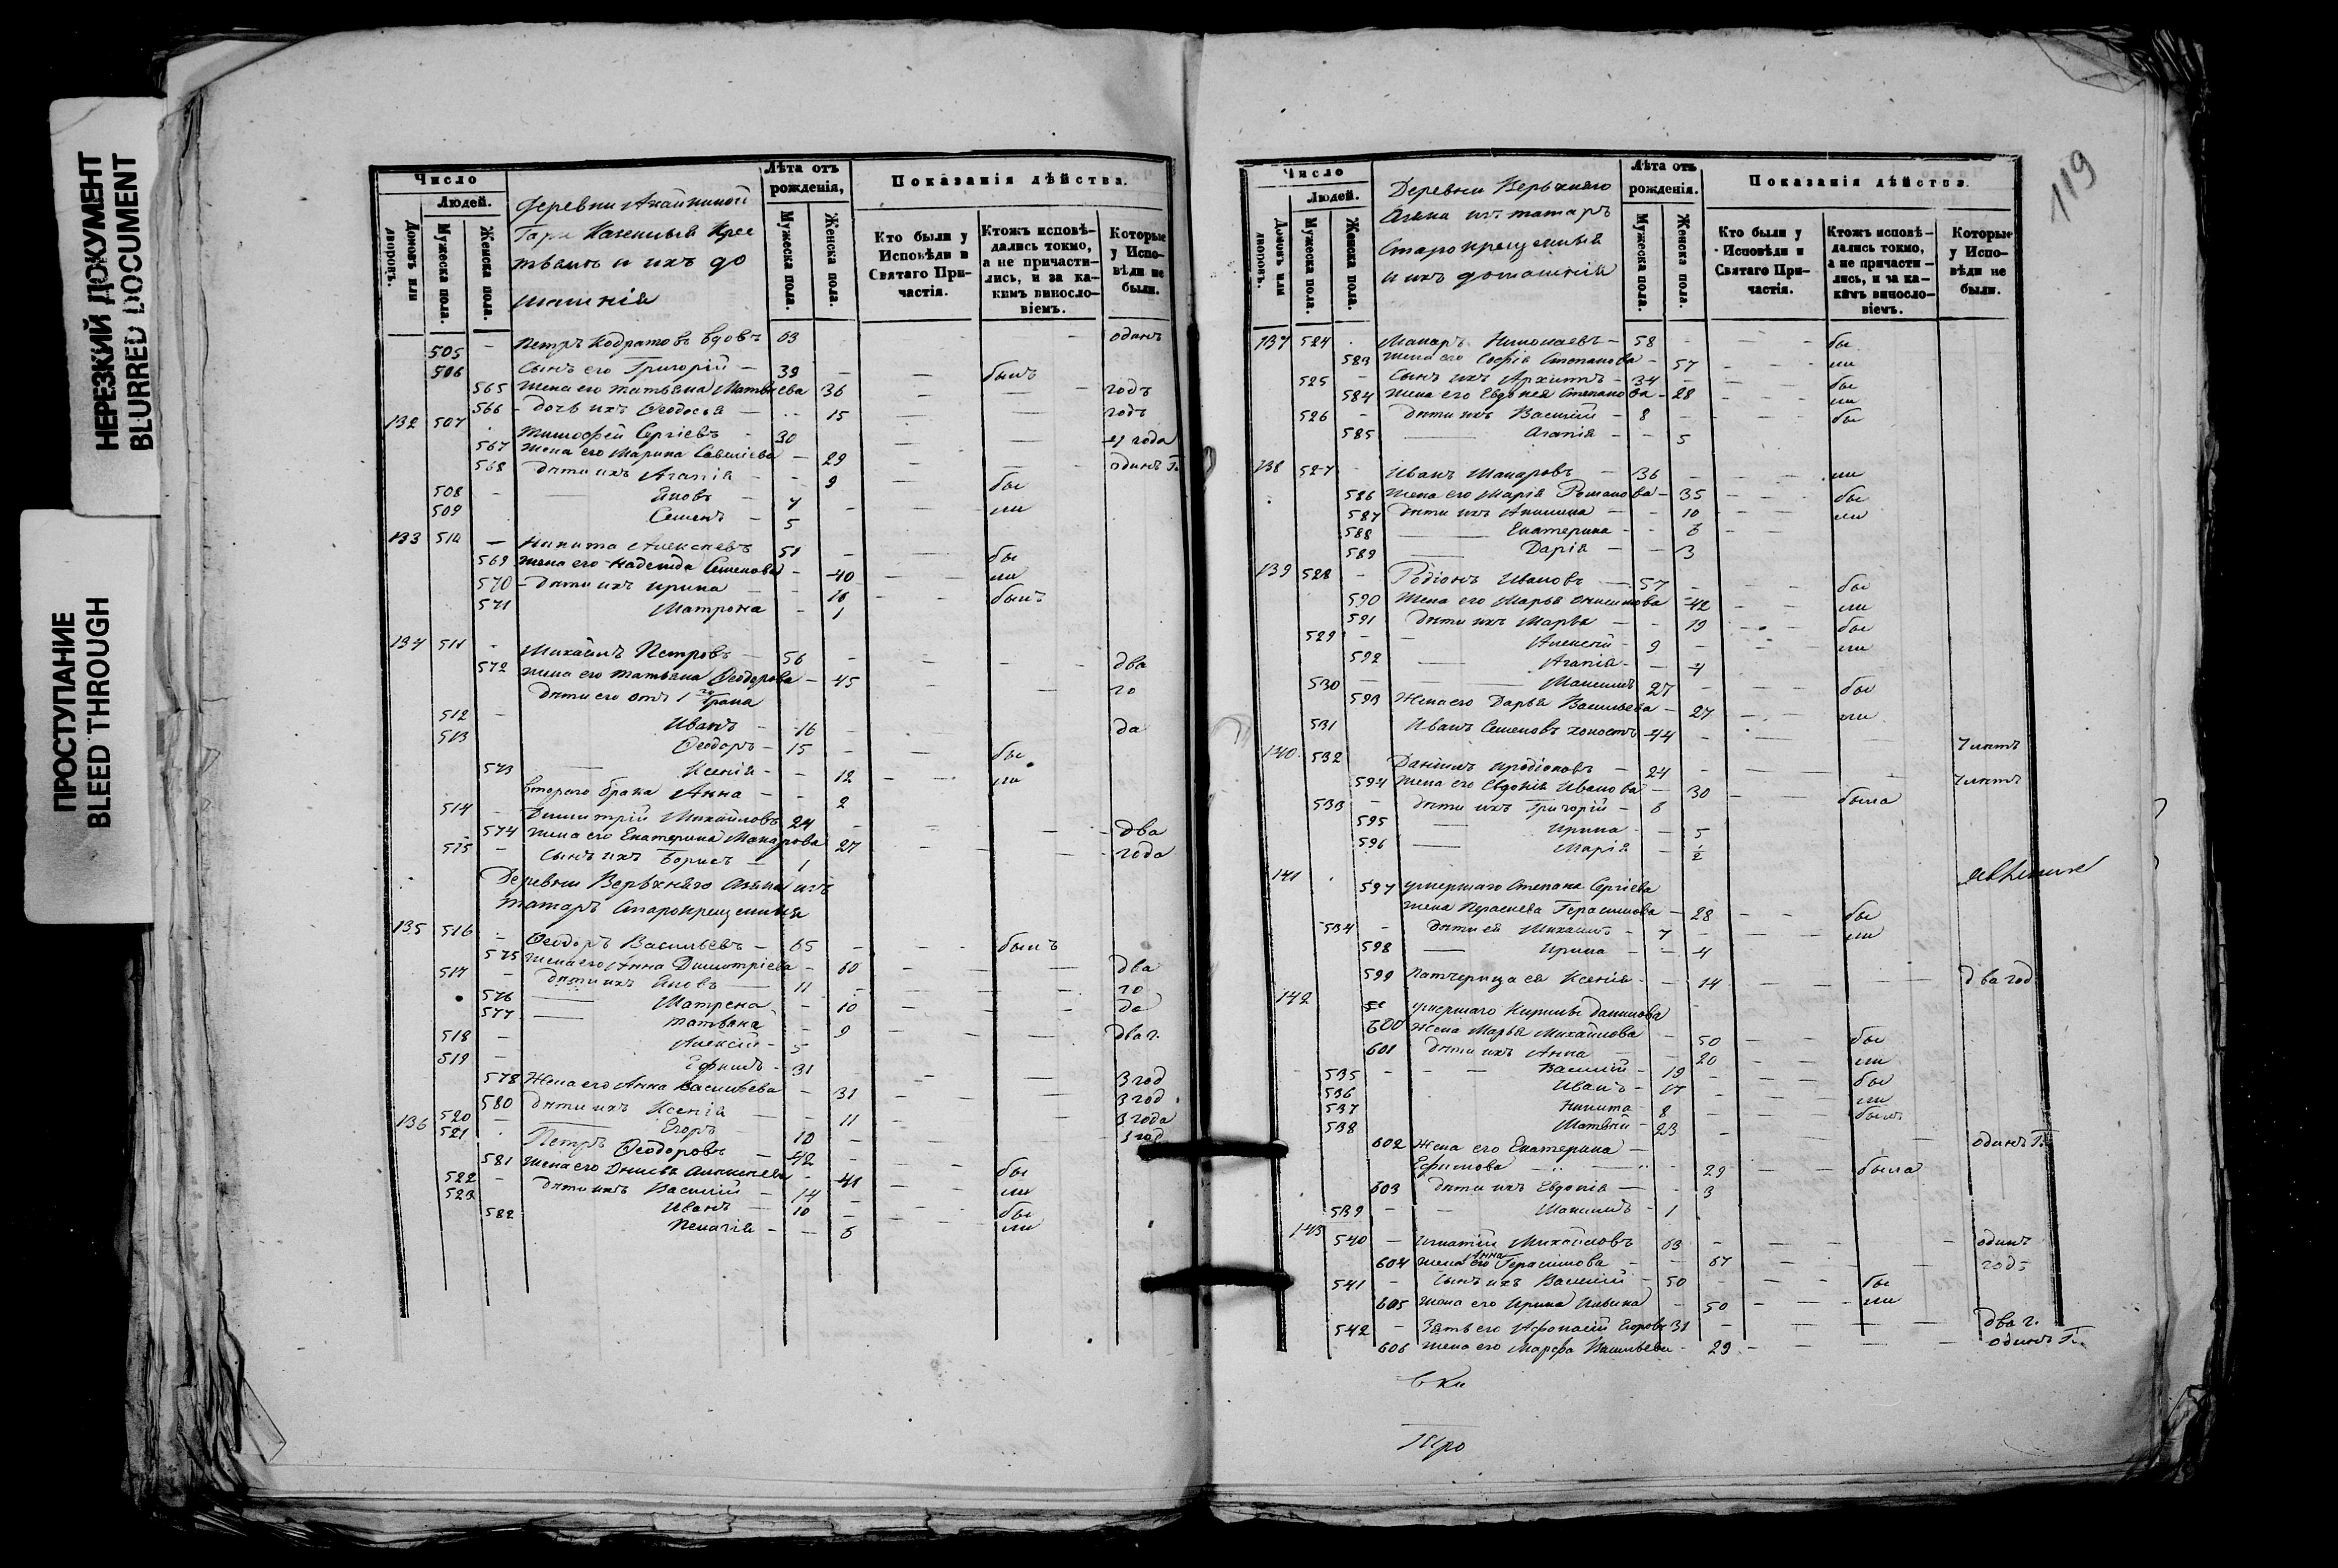 НЕРЕЗКИЙ ДОКУМЕНТ
BLURRED DOCUMENT
ПРОСТУПАНИЕ
BLEED THROUGH
Число
Людей.
Домовъ или дворовъ.
Мужеска пола.
Женска пола.
Деревни
Гари Казенныя Крес
тьянъ и ихъ до
машнія
Лѣта отъ рожденія,
Мужеска пола.
Женска пола.
Показанія дѣйства.
Кто были у Исповѣди и Святаго Причастія.
Ктожъ исповѣдались токмо, а не причастились, и за какимъ винословіемъ.
Которые у Исповѣди не были.
505 – Петръ Кодратовъ вдовъ 63 одинъ
506 Сынъ его Григорій – 39 – былъ
565 жена его Татьяна Матвѣева 36 годъ
566 – дочь ихъ Ѳеодосья – 15 годъ
132 507 Тимофей Сергіевъ – 30 4 года
567 жена его Марина Савеліева – 29 одинъ г.
568 дѣти ихъ Агапія – 9 бы
508 – Яковъ – 7 ли
509 Семенъ – 5
133 510 – Никита Алексѣевъ 51 бы
569 жена его Надежда Семенова – 40 ли
570 – дѣти ихъ Ирина – 16 былъ
571 Матрона – 1
134 511 Михайлъ Петровъ – 56 два
572 жена его Татьяна Ѳеодорова – 45 го
дѣти его отъ 1го брака
512 – Иванъ – 16 да
513 Ѳеодоръ – 15 бы
573 Ксенія – 12 ли
втораго брака Анна – 2
514 – Димитрій Михайловъ 24 –
574 жена его Екатерина Макарова 27 два
515 – сынъ ихъ Борисъ – 1 года
Деревни Верьхняго Азяка изъ
татаръ Старокрещенныя
135 516 – Ѳеодоръ Васильевъ – 65 былъ
575 жена его Анна Димитріева – 60 два
517 – дѣти ихъ Яковъ – 11 го
576 Матрена – 10 да
577 Татьяна – 9
518 – Алексій – 5 два г.
519 – Ефимъ – 31
578 Жена его Анна Васильева – 31 3 год
580 дѣти ихъ Ксенія – 11 3 год
520 – Егоръ – 10 3 года
136 521 Петръ Ѳеодоровъ – 42 3 год
581 жена его – 41 бы
522 – дѣти ихъ Василій – 14 ли
523 Иванъ – 10 бы
582 Пелагія – 6 ли
119
Число
Людей.
Домовъ или дворовъ.
Мужеска пола.
Женска пола.
Деревни Верьхняго
Азяка изъ татаръ
Старокрещенныя
и ихъ домашнія
Лѣта отъ рожденія.
Мужеска пола.
Женска пола.
Показанія дѣйства.
Кто были у Исповѣди и Святаго Причастія.
Ктожъ исповѣдались токмо, а не причастились, и за какимъ винословіемъ.
Которые у Исповѣди не были.
137 524 Макаръ Николаевъ – 58 бы
583 жена его Софія Степанова – 57 ли
525 – Сынъ ихъ Архипъ – 34 бы
584 жена его Евдокея Степанова – 28 ли
526 – дѣти ихъ Василій – 8 бы
585 Агапія – 5
138 527 Иванъ Макаровъ – 36 ли
586 жена его Марія Романова – 35 бы
587 дѣти ихъ Акилина – 10 ли
588 Екатерина – 6
589 Дарія – 3
139 528 – Родіонъ Ивановъ – 57 бы
590 жена его Марья Онисимова 42 ли
591 дѣти ихъ Марья – 19 бы
529 – Алексій – 9 ли
592 Агапія – 4
530 – Максимъ 27 бы
593 Жена его Дарья Васильева – 27 ли
531 Иванъ Семеновъ холостъ 44 7 лѣтъ
140 532 Даніилъ Иродіоновъ – 24 7 лѣтъ
594 жена его Евдокія Иванова – 30 была
533 – дѣти ихъ Григорій – 6
595 Ирина – 5
596 Марія – 1/2
141 597 умершаго Степана Сергіева
жена Параскева Герасимова – 28 бы
534 – дѣти ея Михаилъ – 7 ли
598 Ирина – 4
599 Патчерица ея Ксенія – 14 два год
142 умершаго Кирилы Данилова
600 Жена Марья Михайлова – 50 бы
601 дѣти ихъ Анна – 20 ли
535 – Василій – 19 бы
536 Иванъ – 17 ли
537 Никита – 8 былъ
538 Матвѣй – 23 одинъ г.
602 Жена его Екатерина –
Ефимова – 29 была
603 дѣти ихъ Евдокія – 3
539 – Максимъ – 1
143 540 – Игнатій Михайловъ 63 одинъ
604 жена его Анна Герасимова – 67 годъ
541 – сынъ ихъ Василій – 50 бы
605 жена его Ирина Ильина – 50 ли
542 – Зять его Афонасій Егоровъ 31 два г.
606 жена его Марфа Васильева – 29 одинъ г.